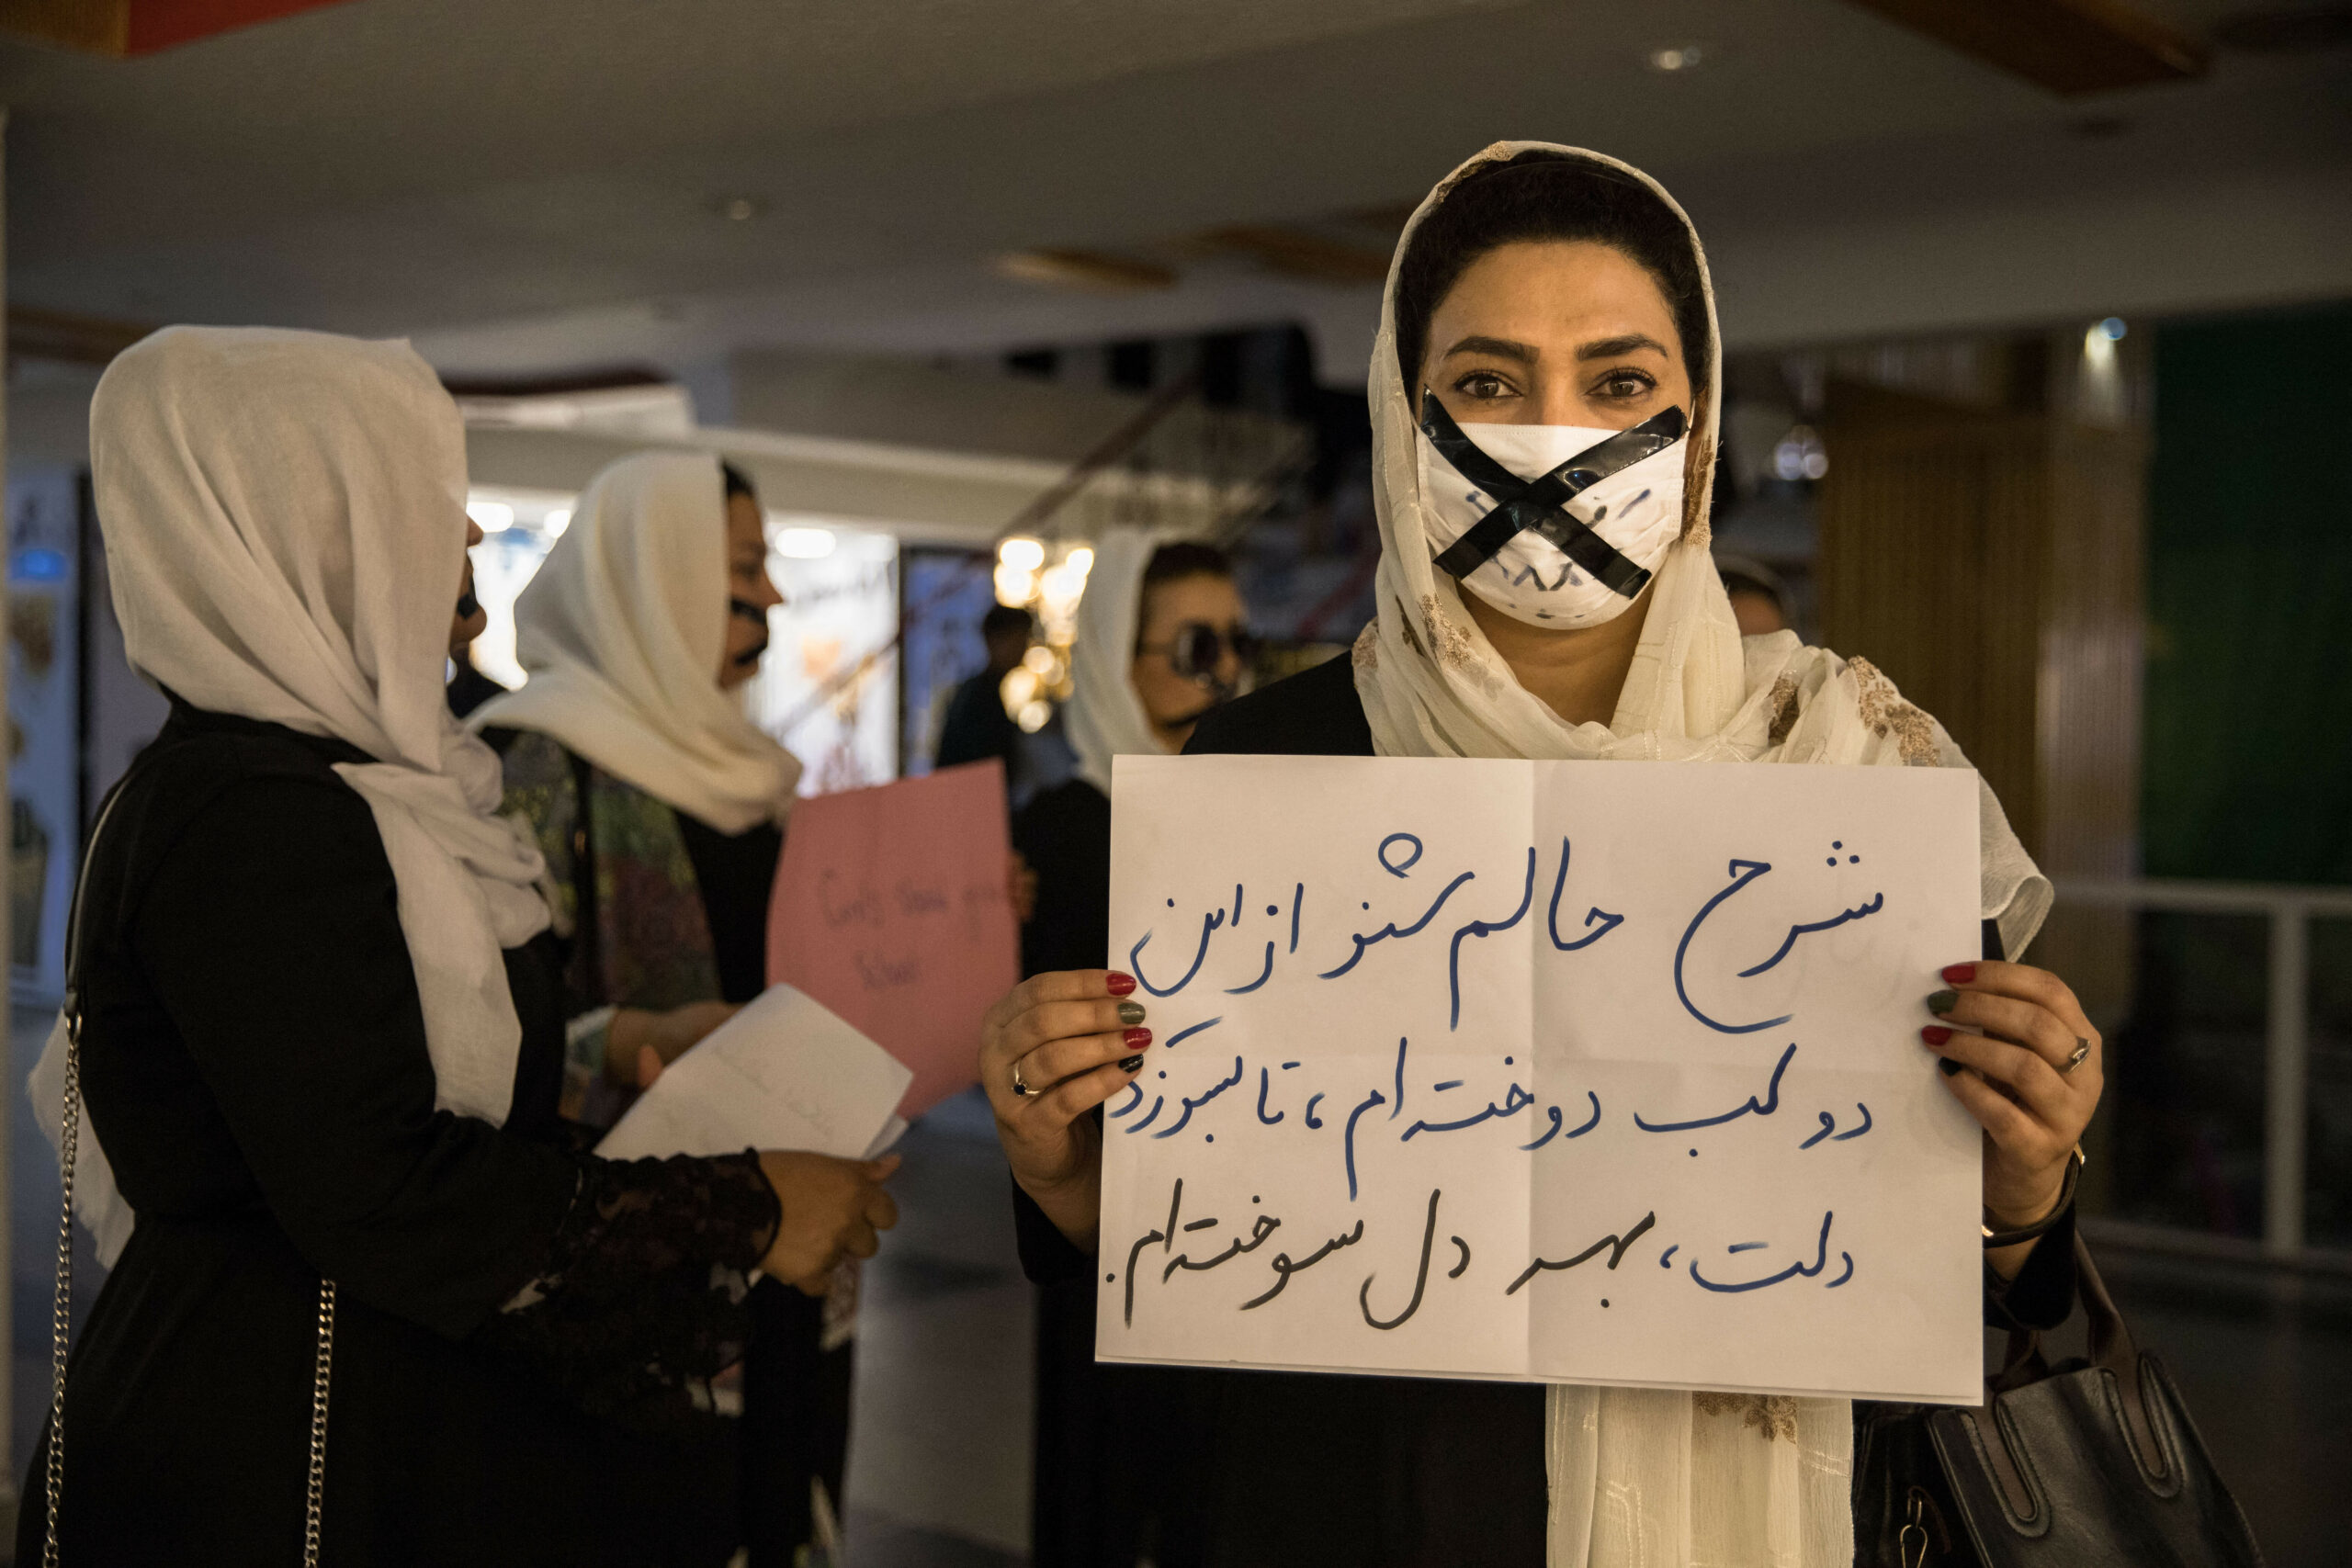 شرح حالم شنو از این
دو لب دوخته ام، تا بسوزد
دلت، بهر دل سوخته ام.
Girls
School